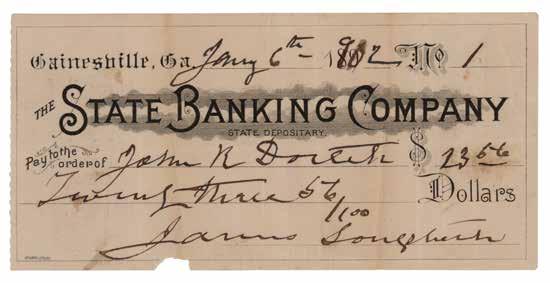 Gainesville, Ga. Jany 6th 1892 No 1
THE STATE BANKING COMPANY
STATE DEPOSITARY.
Pay to the order of John R $ 23 56
Twenty three 56/100 Dollars
James Longstreet